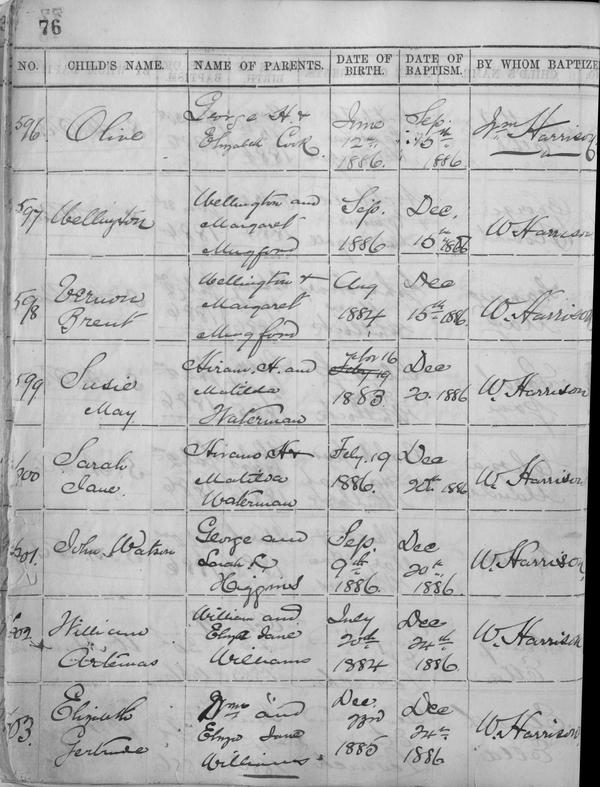 76
NO. CHILD'S NAME. NAME OF PARENTS. DATE OF BIRTH. DATE OF BAPTISM. BY WHOM BAPTIZE
596 Olive George H. & Elizabeth Cook. June 12th 1886. Sep. 15th 1886 Wm Harrison
597 Wellington Wellington and Margaret Mugford Sep. 1886 Dec. 15th 1886 W Harrison
598 Vernon Brent Wellington & Margaret Mugford Aug 1884 Dec 15th 1886 W. Harrison
599 Susie May Hiram, H. and Matilda Waterman Nov 16 1883 Dec 20. 1886 W. Harrison
600 Sarah Jane Hiram H & Matilda Waterman Feby. 19 1886. Dec 20th 1886 W. Harrison
601. John Watson George and Sarah Higgins Sep 9th 1886. Dec 20th 1886. W. Harrison
602. William Artemas William and Elizth Jane Williams July 20th 1884 Dec 24th 1886 W. Harrison
603. Elizabeth Gertrude Wm and Jane Williams Dec. 23rd 1885 Dec 24th 1886 W. Harrison